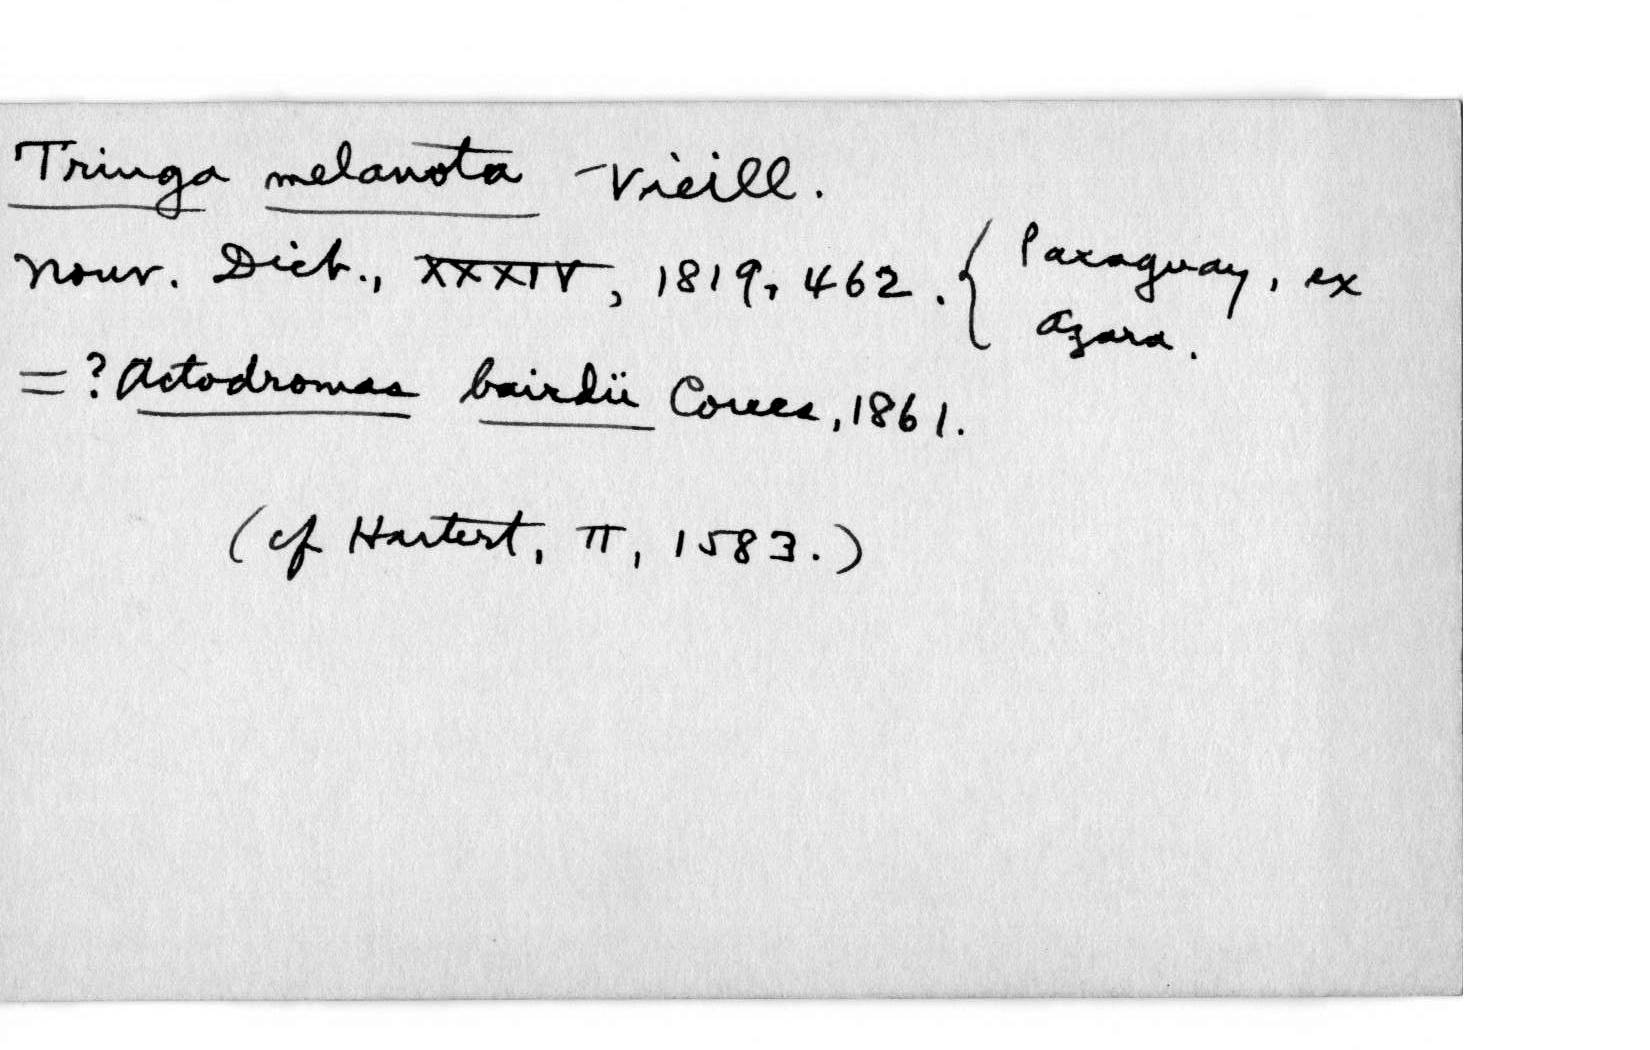 Tringa melanota Vieill.
Nouv. Dict., XXXIV, 1819, 462. { Paraguay, ex
Azara.
= ? Actodromas bairdii Coues, 1861.
(cf Hartert, II, 1583.)